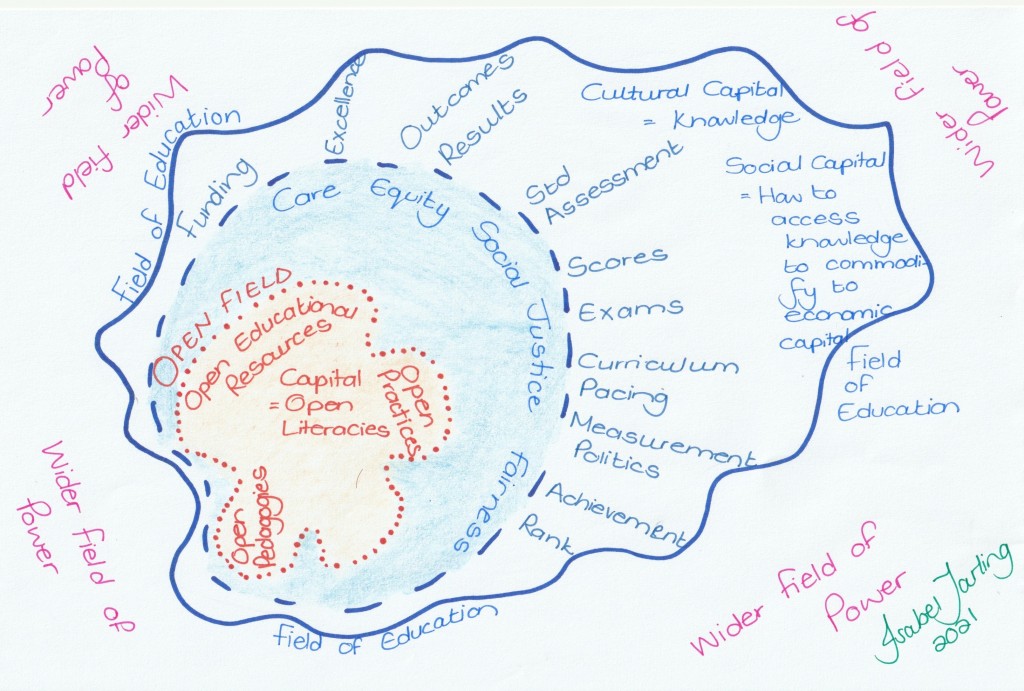 Wider field
of
Power
Wider
Field of
Power
Field of Education
Funding
Excellence
Outcomes
Results
Cultural Capital
= Knowledge
Std
Assessment
Social Capital
= How to
access
knowledge
to commodi-
fy to
economic
capital
Care Equity Social Justice Fairness
Scores
Exams
Curriculum
Pacing
Measurement
Politics
Achievement
Rank
Field
of
Education
OPEN FIELD
Open Educational
Resources
Capital
= Open
Literacies
Open
Practices
Open
Pedagogies
Wider field of
Power
Field of Education
Wider field of
Power
2021